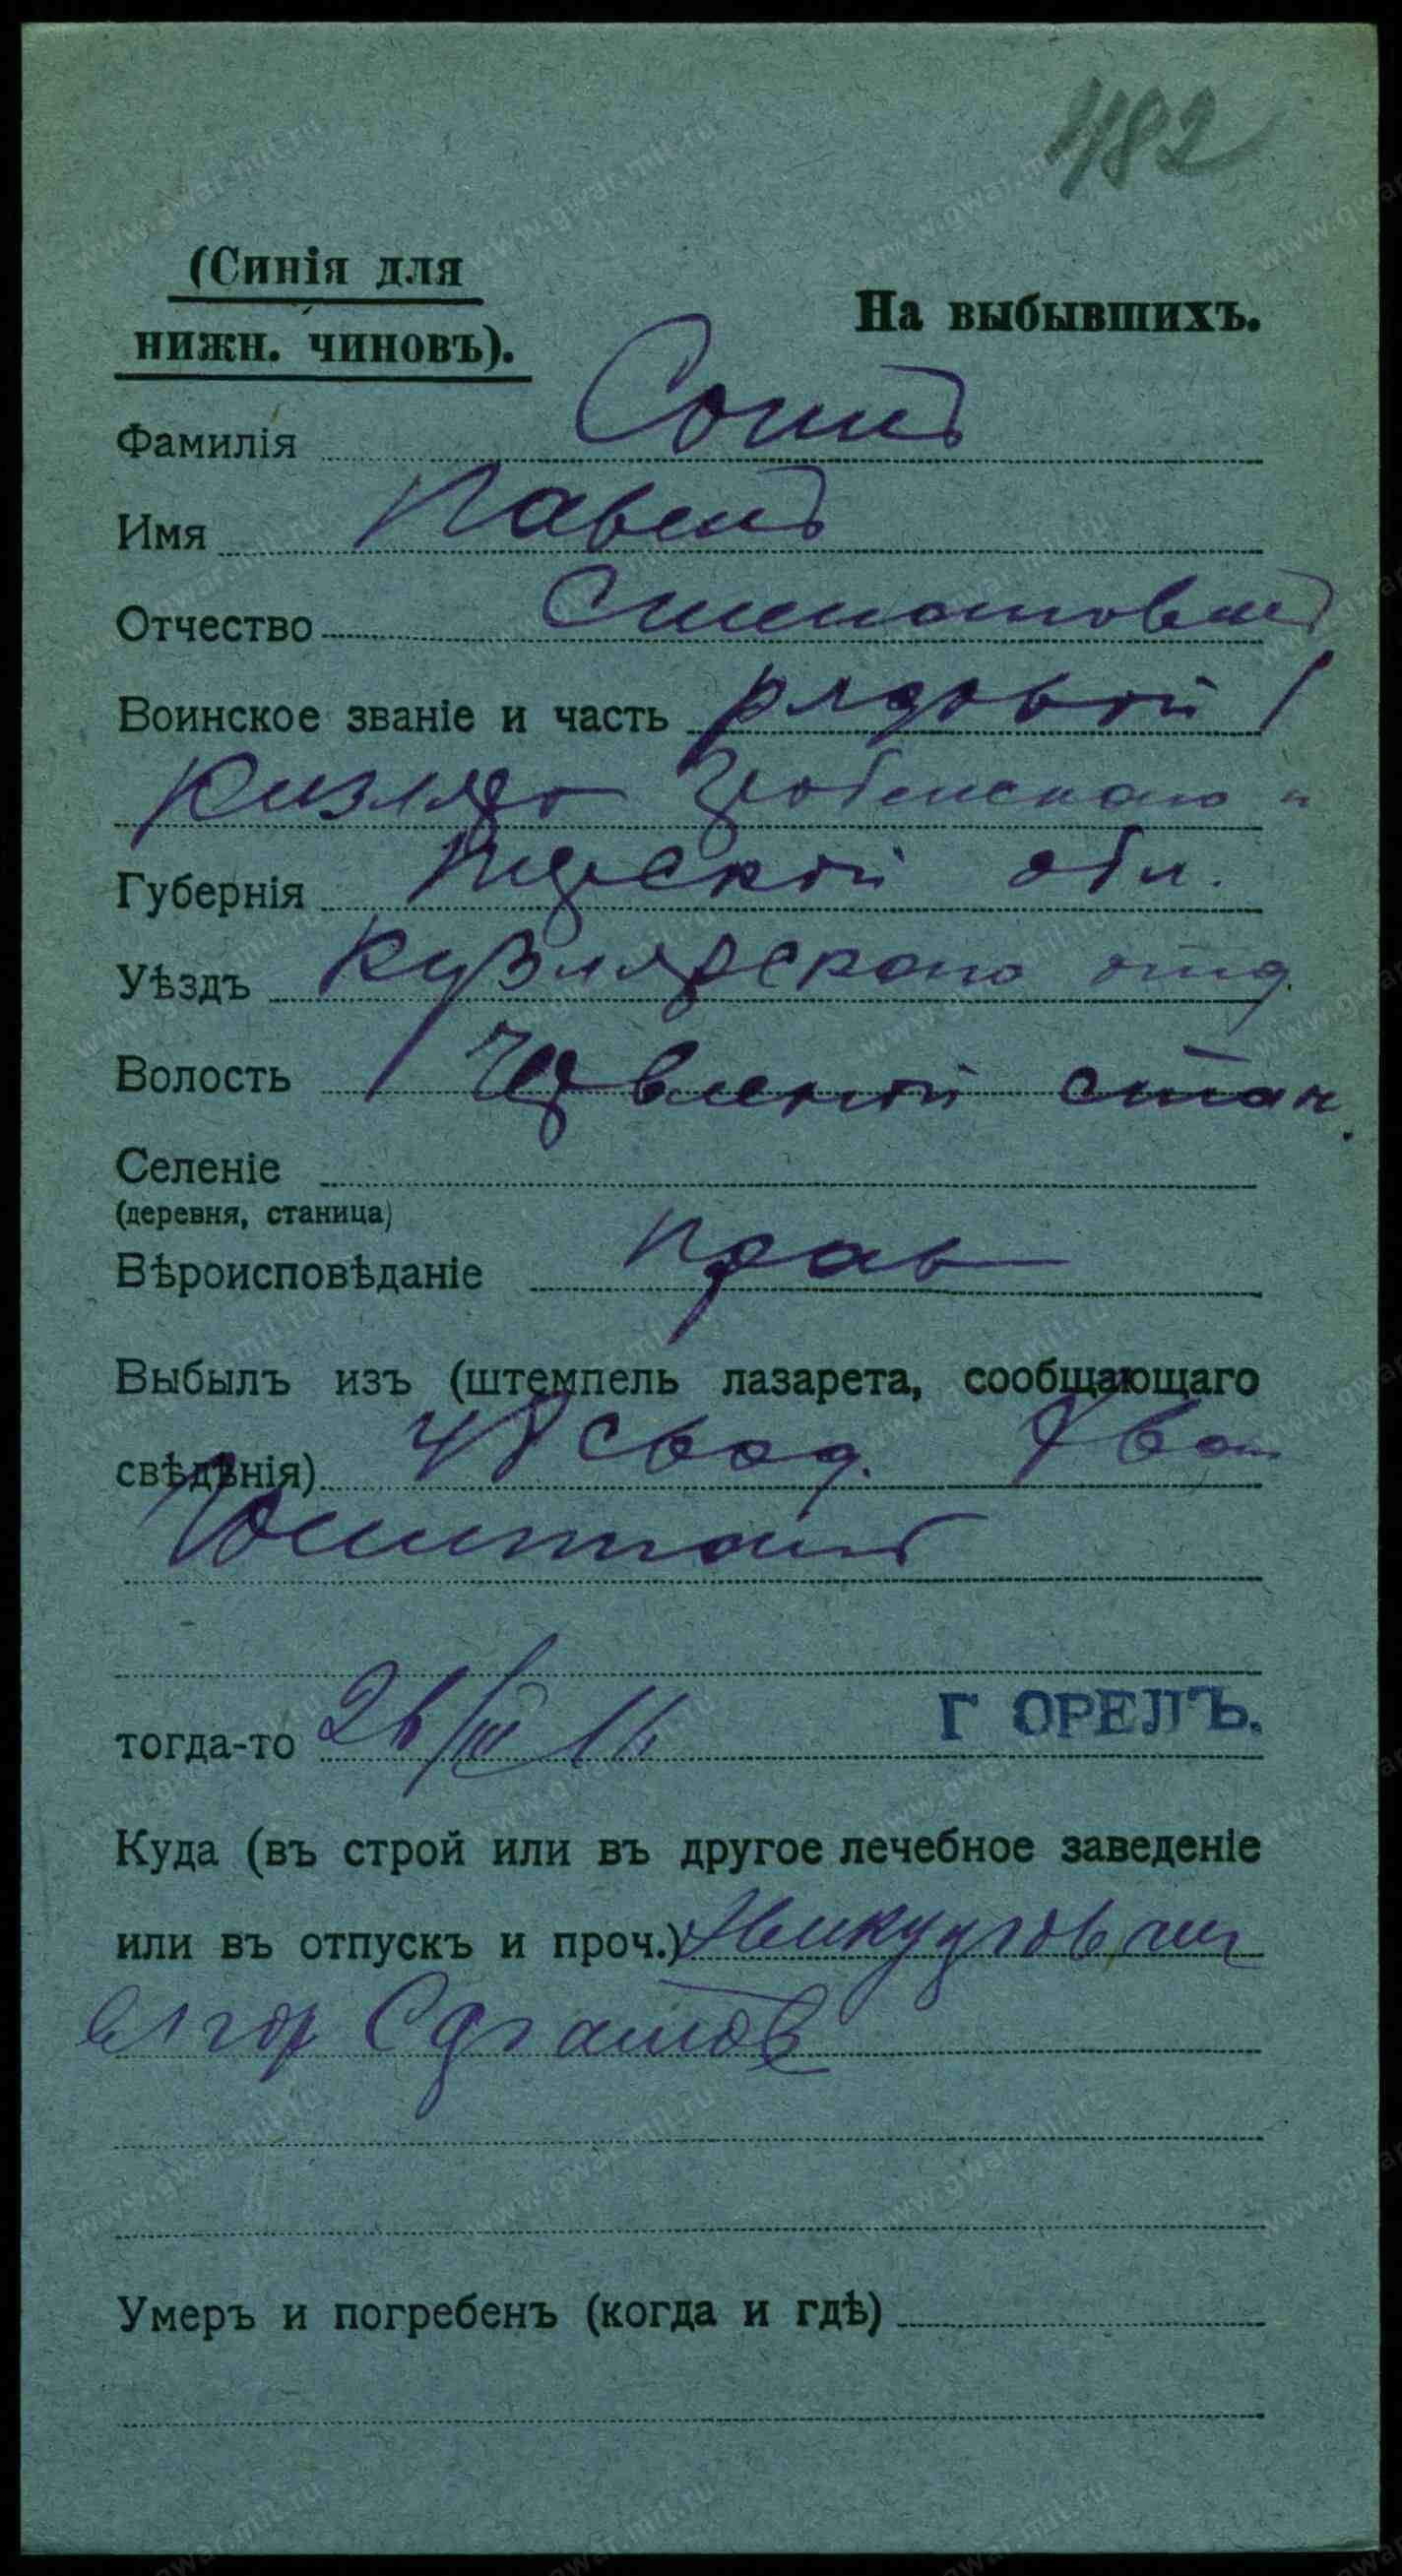 482
(Синія для
нижн. чиновъ).
На выбывшихъ.
Фамилія
Имя Павелъ
Отчество
Воинское званіе и часть рядовой 1
Кизляро Гребенскаго п
Губернія Терской обл.
Уѣздъ Кузлярскаго отд.
Волость Червленой стан.
Селеніе
(деревня, станица)
Вѣроисповѣданіе прав
Выбылъ изъ (штемпель лазарета, сообщающаго
свѣдѣнія) 48 свод. Эвак
Госпиталь
тогда-то 26/III 16 Г ОРЕЛЪ.
Куда (въ строй или въ другое лечебное заведеніе
или въ отпускъ и проч.) Эвакуированъ
въ гор Саратовъ
Умеръ и погребенъ (когда и гдѣ)